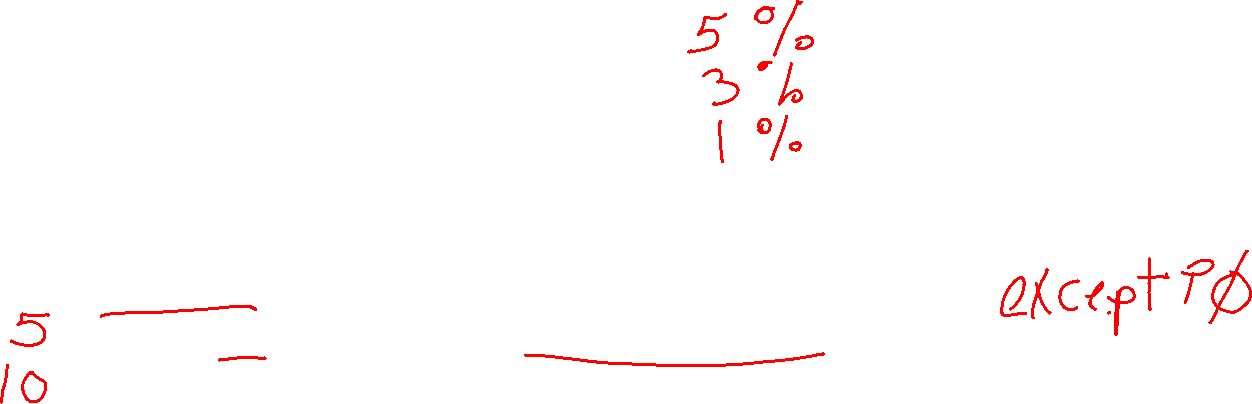 5 %
3 %
1 %
except PØ
5
10